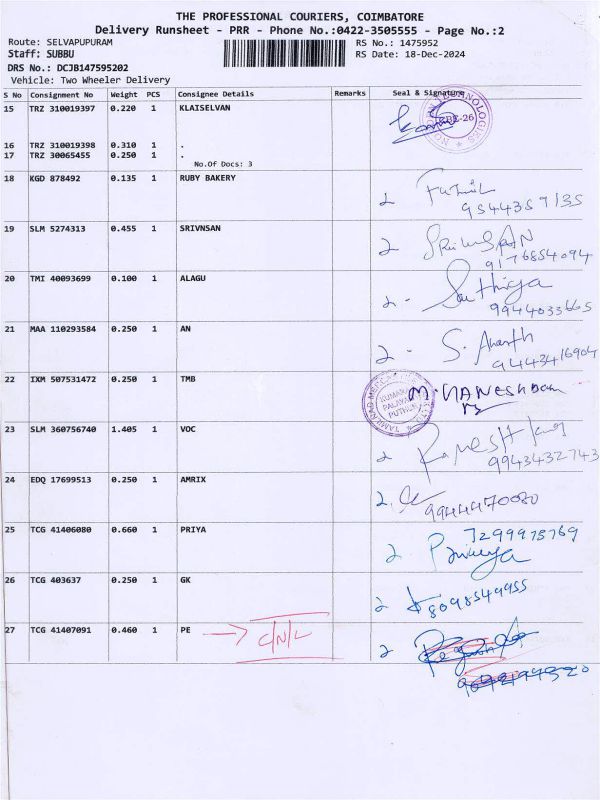 THE PROFESSIONAL COURIERS, COIMBATORE
Delivery Runsheet - PRR - Phone No.:0422-3505555 - Page No.:2
Route: SELVAPUPURAM RS No.: 1475952
Staff: SUBBU RS Date: 18-Dec-2024
DRS No.: DCJB147595202
Vehicle: Two Wheeler Delivery
S No Consignment No Weight PCS Consignee Details Remarks Seal & Signature
15 TRZ 310019397 0.220 1 KLAISELVAN
16 TRZ 310019398 0.310 1 .
17 TRZ 30065455 0.250 1 .
No.Of Docs: 3
18 KGD 878492 0.135 1 RUBY BAKERY
9544357135
19 SLM 5274313 0.455 1 SRIVNSAN
9176854094
20 TMI 40093699 0.100 1 ALAGU
Sathiya
9944033665
21 MAA 110293584 0.250 1 AN
S. Ananth
9443416904
22 IXM 507531472 0.250 1 TMB
23 SLM 360756740 1.405 1 VOC
Ramesh
9943432743
24 EDQ 17699513 0.250 1 AMRIX
9944470080
25 TCG 41406080 0.660 1 PRIYA
7299975769
26 TCG 403637 0.250 1 GK
8098549955
27 TCG 41407091 0.460 1 PE C/N/L